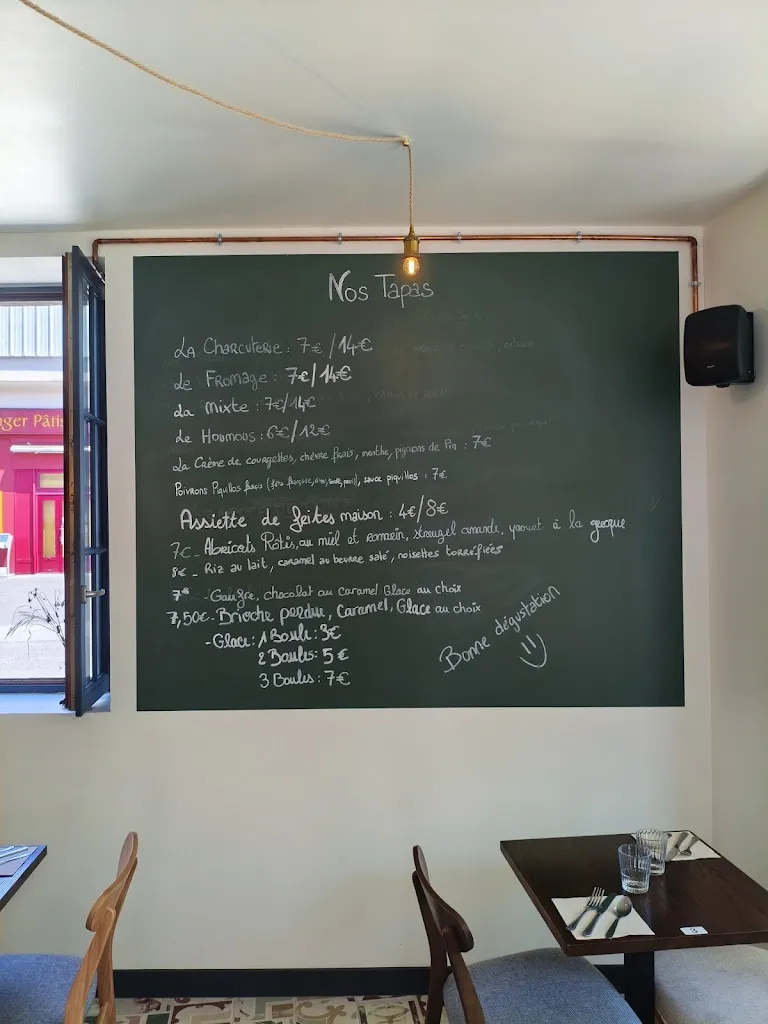 Nos Tapas
La Charcuterie : 7€ / 14€
Le Fromage : 7€/14€
La Mixte : 7€/14€
Le Houmous : 6€/12€
La Crème de courgettes, chèvre frais, menthe, pignons de Pin : 7€
Poivrons Piquillos farcis (féta française, persil), sauce piquillos : 7€
Assiette de frites maison : 4€/8€
7€ - Abricots Rôtis, au miel et romarin, streuzel amande, yaourt à la grecque
8€ - Riz au lait, caramel au beurre salé, noisettes torréfiées
7€ - Gaufre, chocolat ou caramel Glace au choix
7,50€ - Brioche perdue, Caramel, Glace au choix
- Glace : 1 Boule : 3€
2 Boules : 5€
3 Boules : 7€
Bonne dégustation
ger Pâtis
3